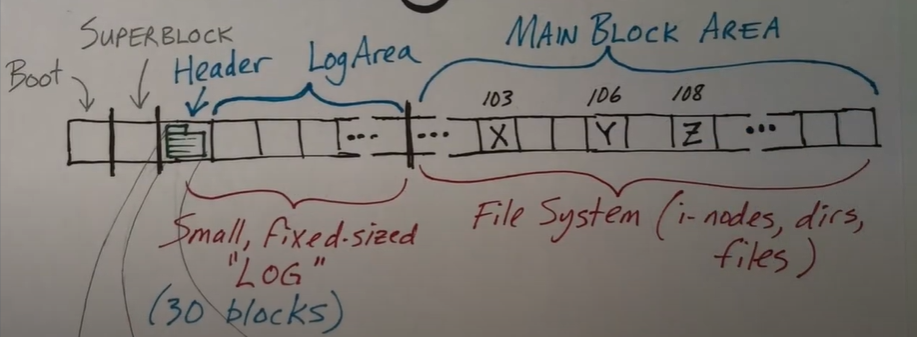 SUPERBLOCK
Boot
Header
Log Area
MAIN BLOCK AREA
103 106 108
... ... X Y Z ...
Small, fixed-sized
"LOG"
(30 blocks)
File System (i-nodes, dirs,
files)